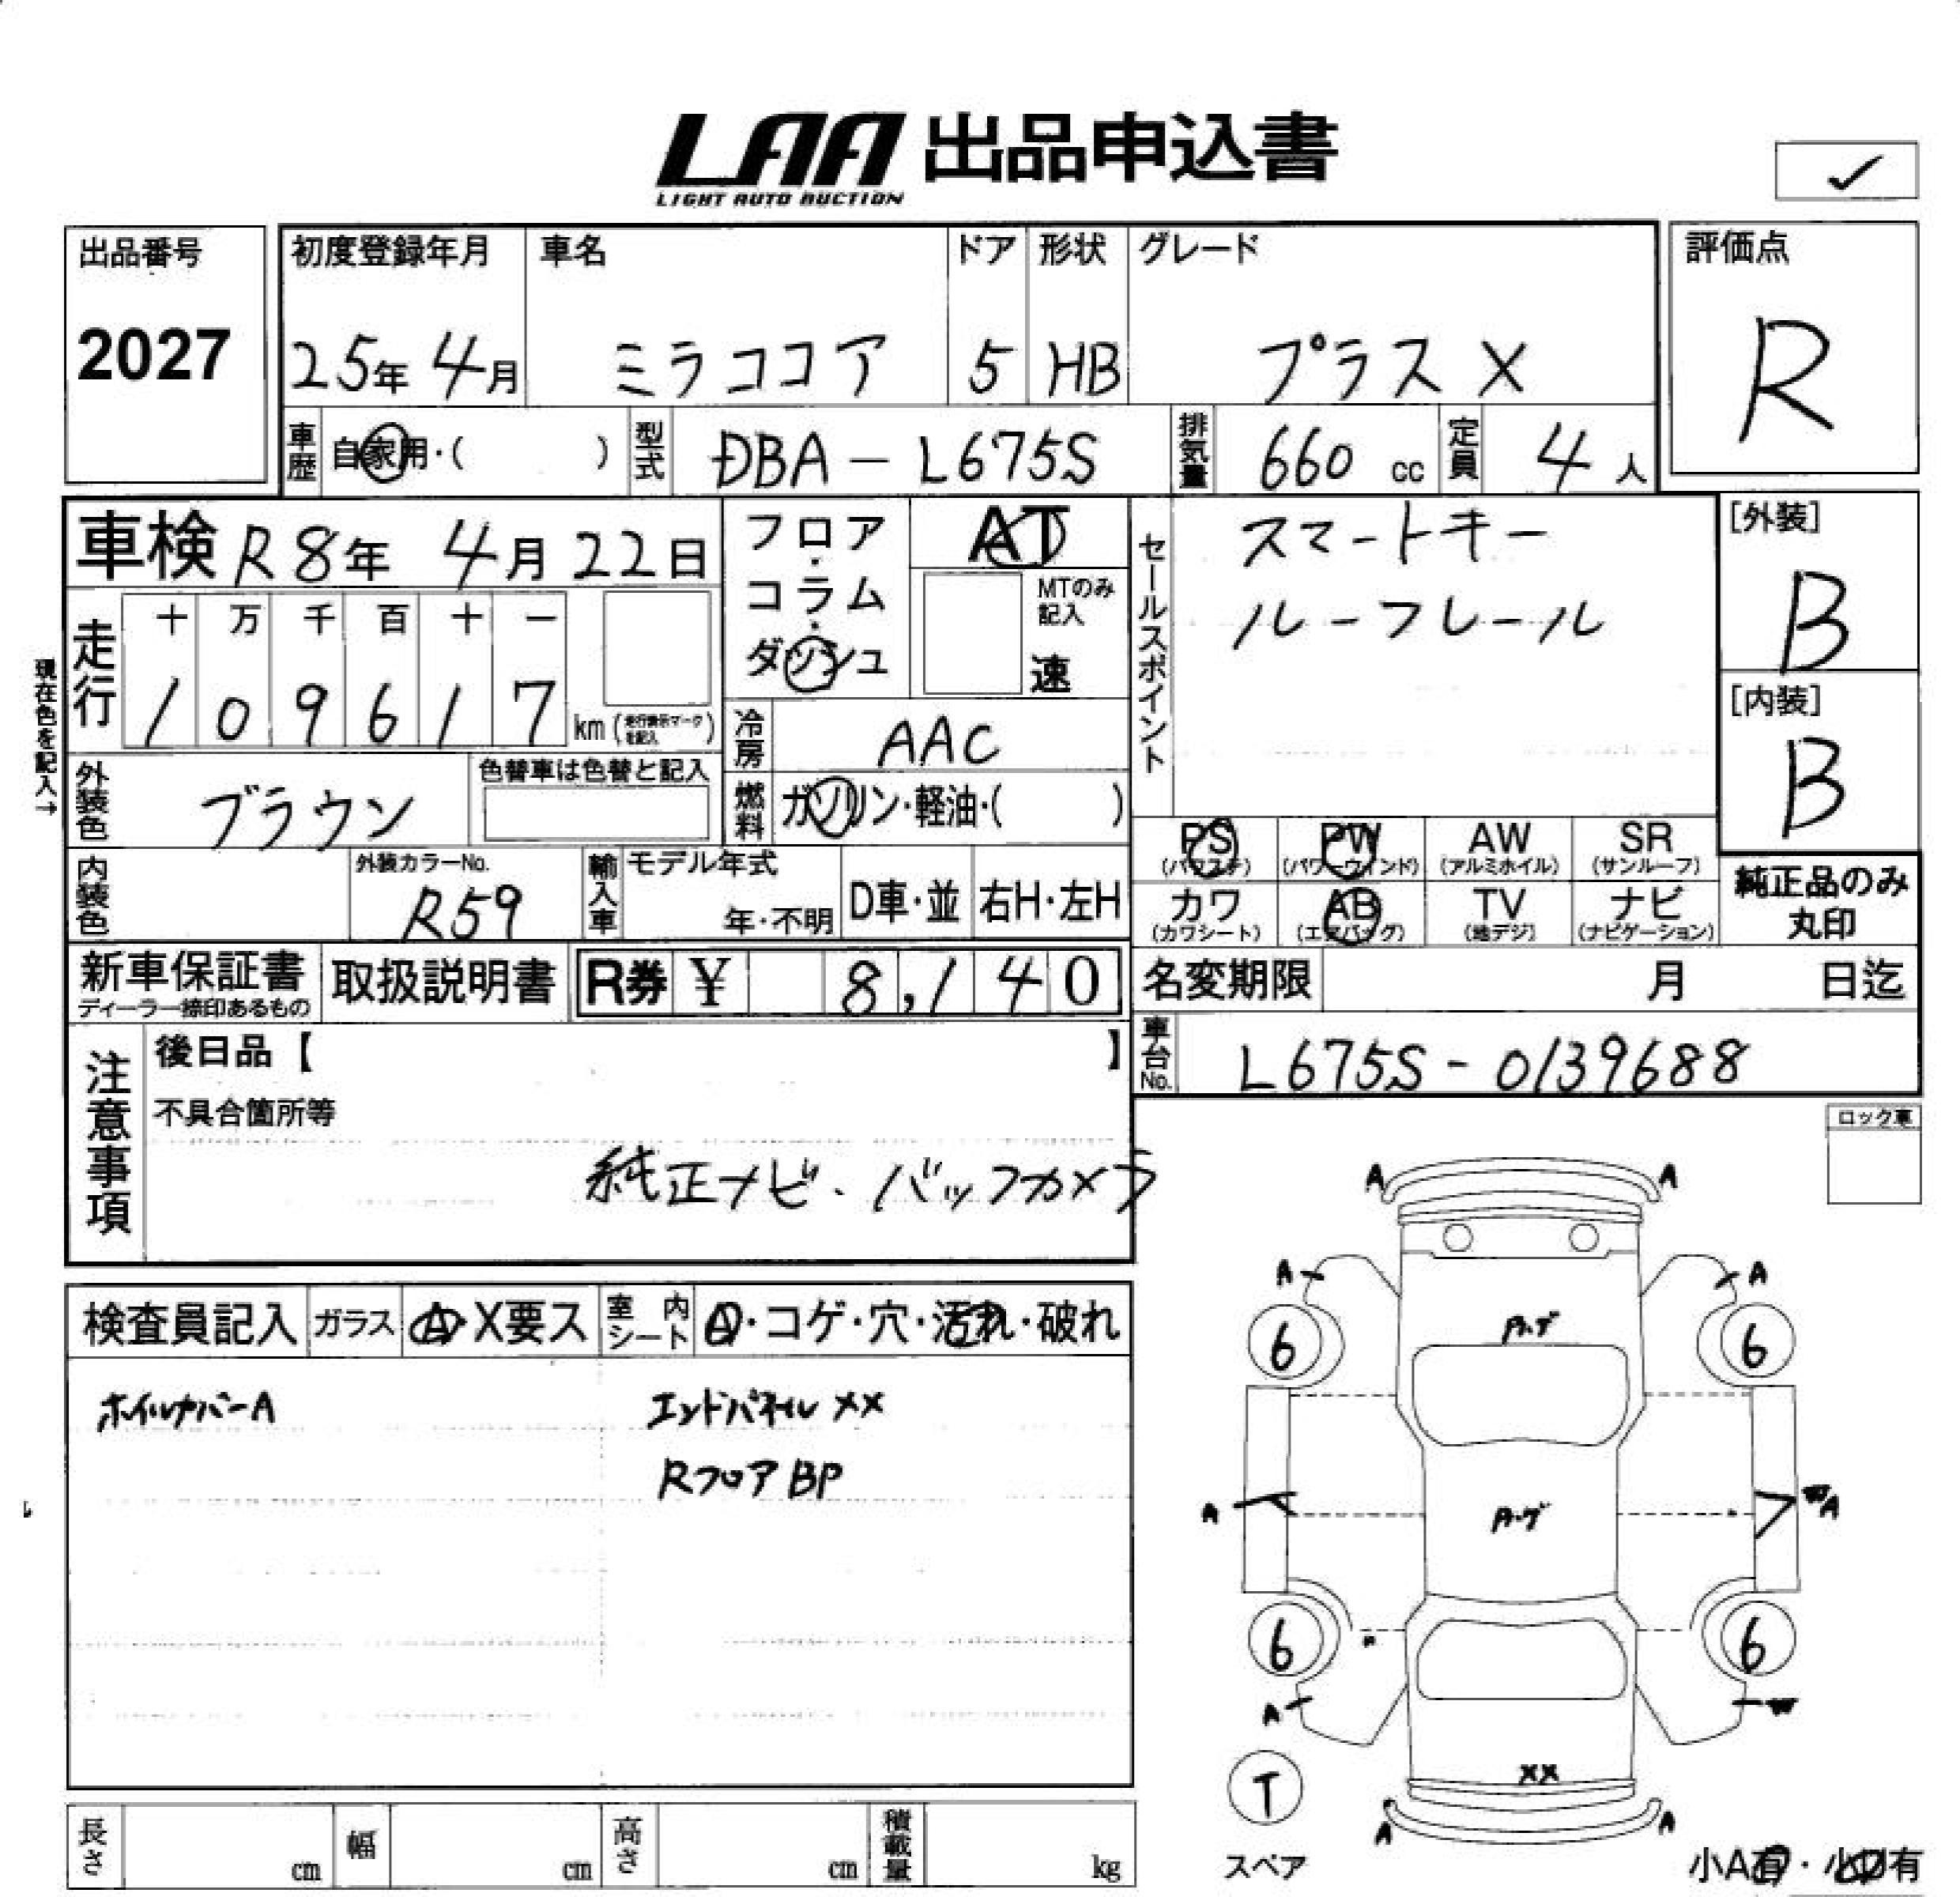 LAA 出品申込書
LIGHT AUTO AUCTION
✓
出品番号
2027
初度登録年月
25年 4月
車名
ミラココア
ドア
5
形状
HB
グレード
プラス X
評価点
R
車歴 自家用・( )
型式 DBA-L675S
排気量 660 cc
定員 4 人
車検 R8年 4月 22日
フロア・コラム・ダッシュ
AT
MTのみ記入
速
セールスポイント
スマートキー
ルーフレール
[外装]
B
[内装]
B
現在色を記入→
走行
十 万 千 百 十 一
1 0 9 6 1 7 km (走行表示マークを記入)
冷房 AAC
外装色 ブラウン
色替車は色替と記入
燃料 ガソリン・軽油・( )
PS (パワステ)
PW (パワーウィンド)
AW (アルミホイル)
SR (サンルーフ)
カワ (カワシート)
AB (エアバッグ)
TV (地デジ)
ナビ (ナビゲーション)
純正品のみ
丸印
内装色
外装カラーNo.
R59
輸入車
モデル年式
年・不明
D車・並
右H・左H
新車保証書
ディーラー捺印あるもの
取扱説明書
R券 ¥ 8,140
名変期限 月 日迄
車台No. L675S-0139688
注意事項
後日品【 】
不具合箇所等
純正ナビ、バックカメラ
ロック車
検査員記入
ガラス A・X要ス
室内シート A・コゲ・穴・汚れ・破れ
ホイルカバーA
エンドパネル XX
Rフロア BP
A A
A A
6 6
A・グ
A・グ
A
W A
6 6
A W
XX
T
スペア
A A
長さ cm
幅 cm
高さ cm
積載量 kg
小A有・小U有